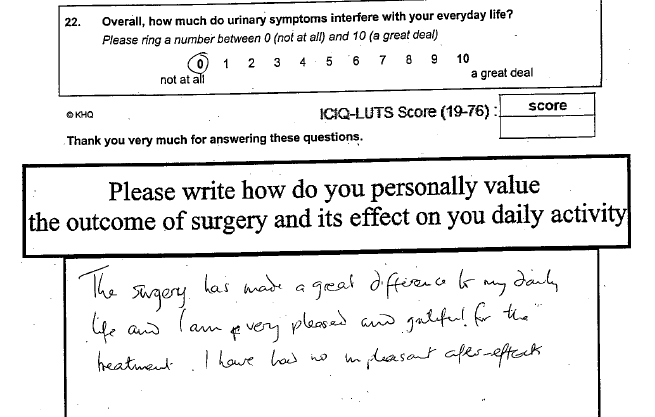 22. Overall, how much do urinary symptoms interfere with your everyday life?
Please ring a number between 0 (not at all) and 10 (a great deal)
0 1 2 3 4 5 6 7 8 9 10
not at all a great deal
© KHQ
ICIQ-LUTS Score (19-76) : score
Thank you very much for answering these questions.
Please write how do you personally value
the outcome of surgery and its effect on you daily activity
The surgery has made a great difference to my daily
life and I am very pleased and grateful for the
treatment. I have had no unpleasant after-effects